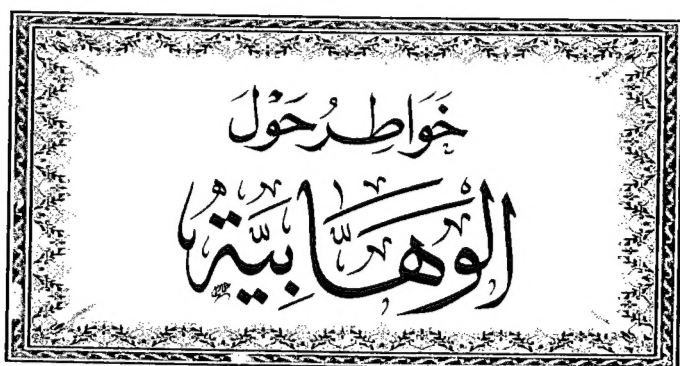 خَوَاطِرُ حَوْلَ
الوَهَّابِيَّة